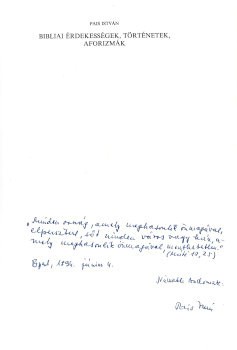 PAIS ISTVÁN
BIBLIAI ÉRDEKESSÉGEK, TÖRTÉNETEK,
AFORIZMÁK
„Minden ország, amely meghasonlik önmagával,
elpusztul, sőt minden város vagy ház, a-
mely meghasonlik önmagával,
(Máté 12,25)
1994. június 4.
Pais István